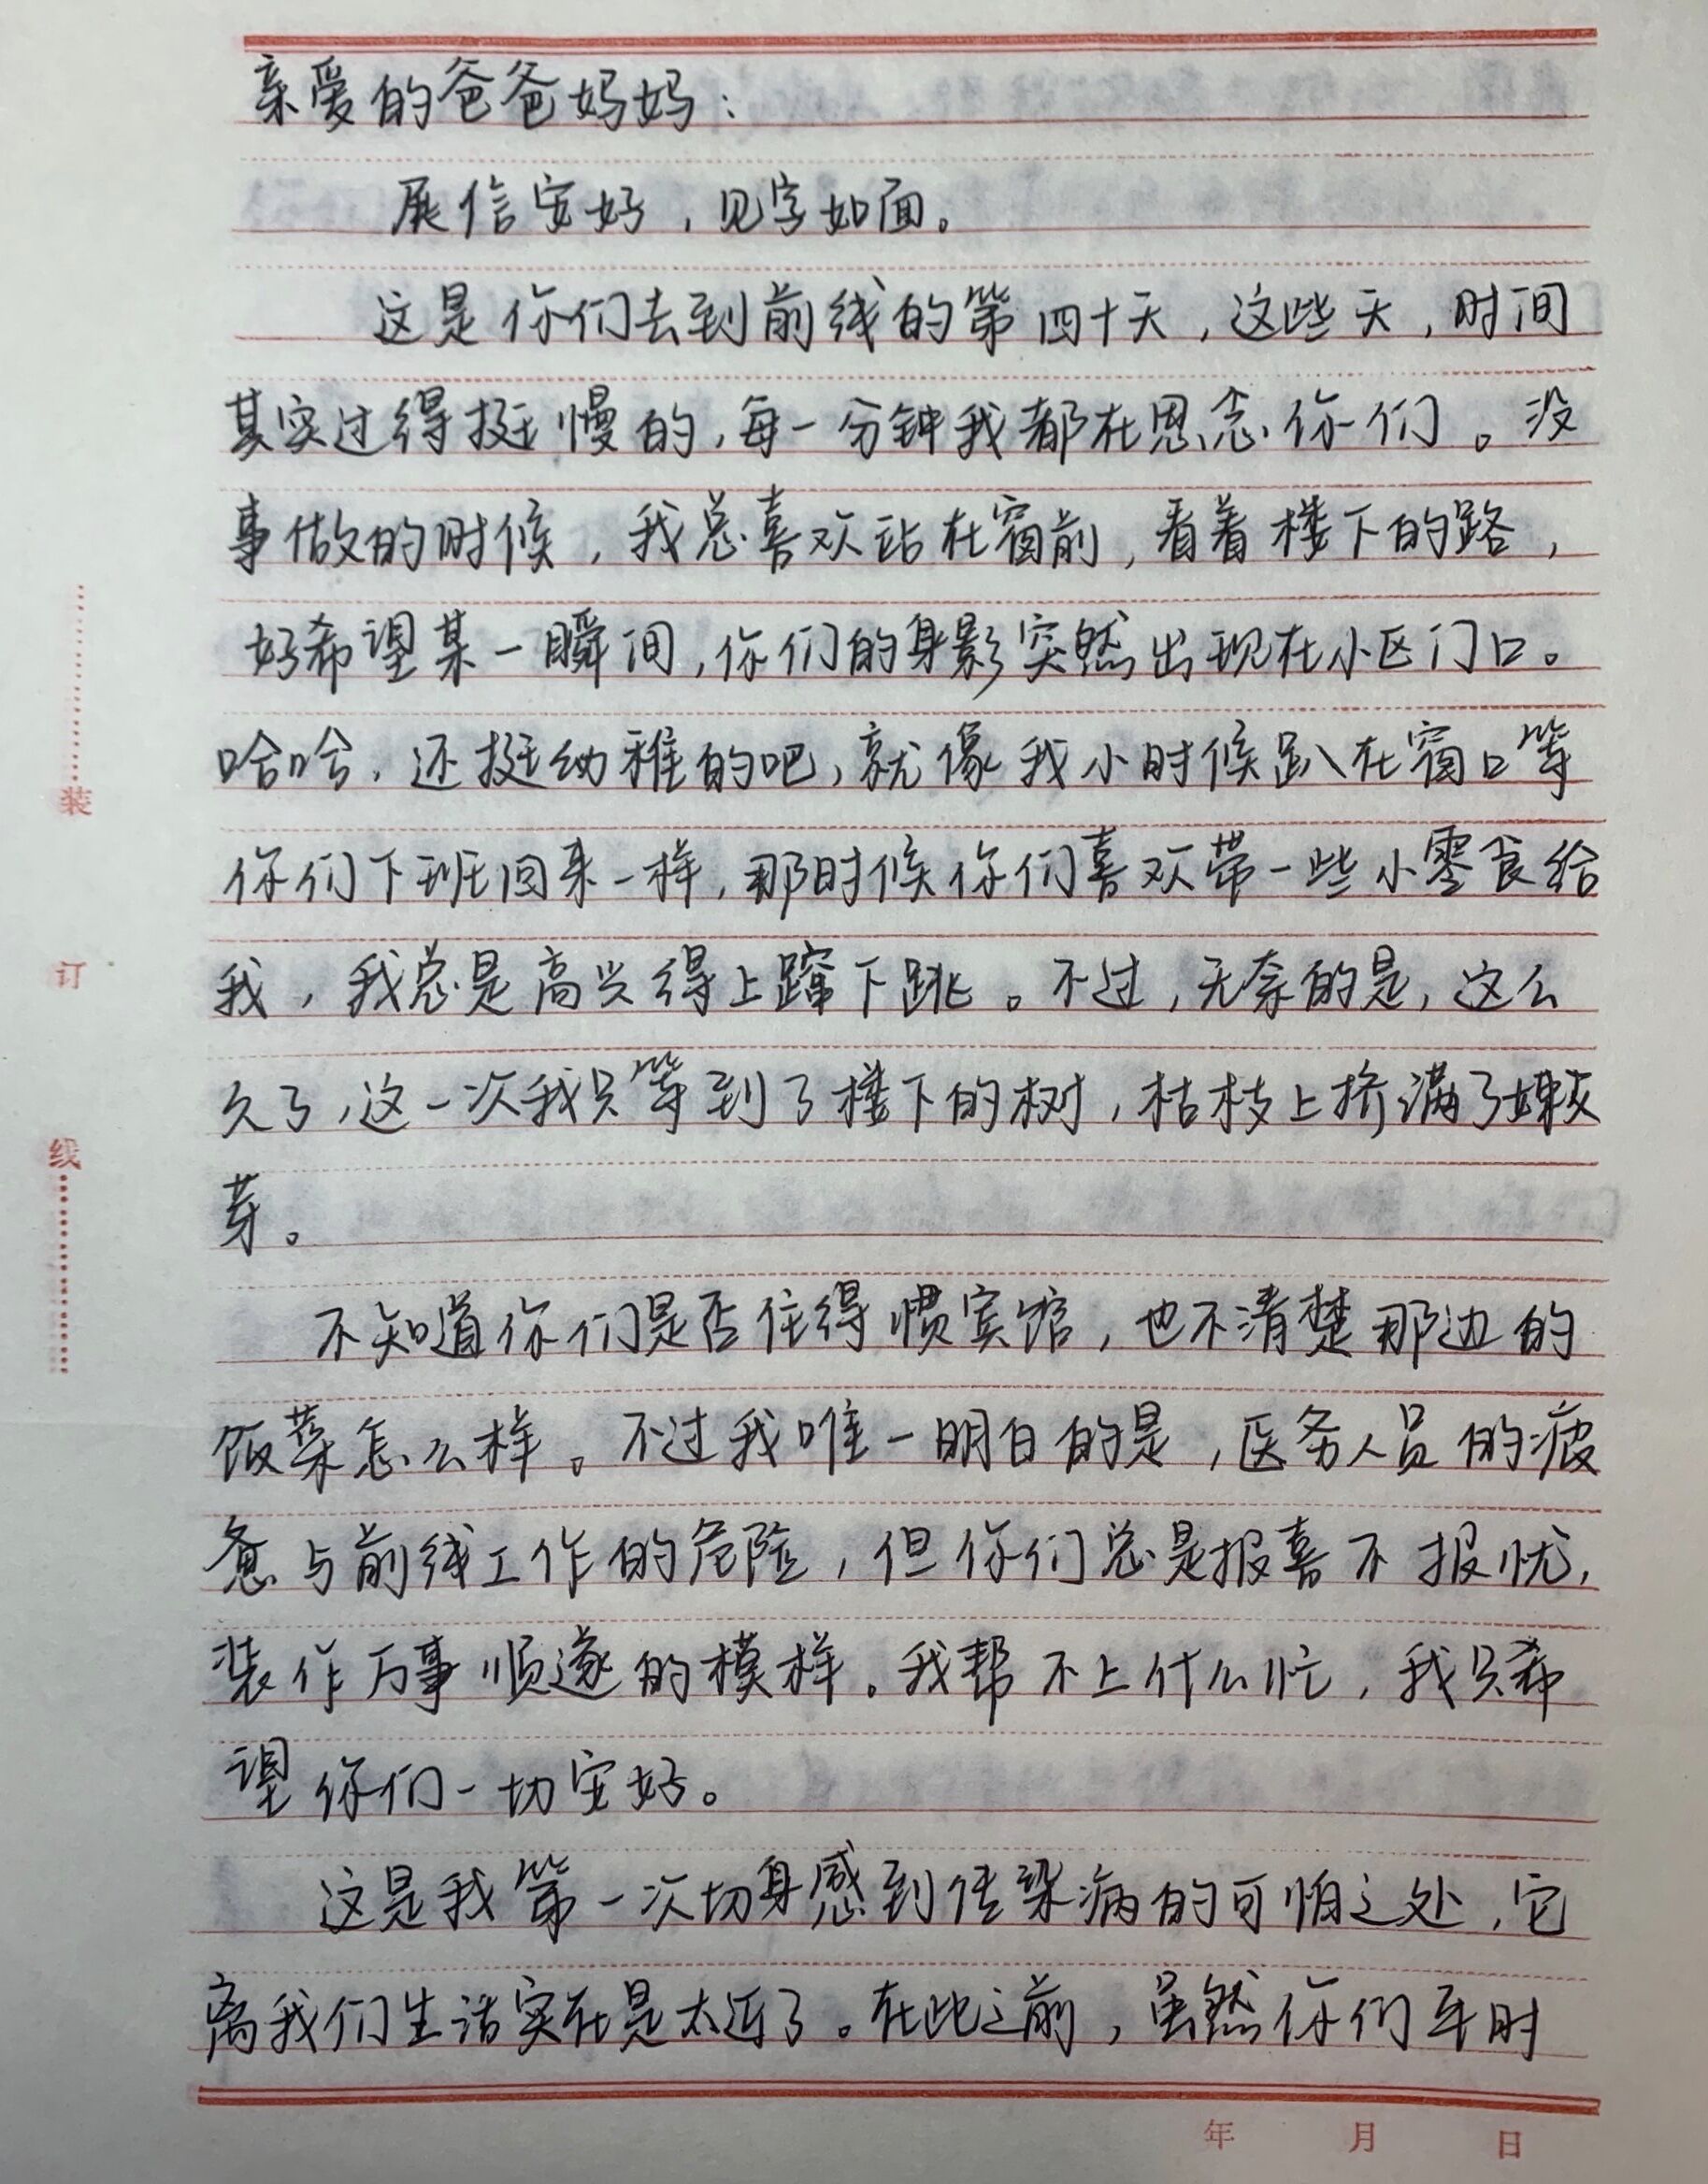 亲爱的爸爸妈妈：
展信安好，见字如面。
这是你们去到前线的第四十天，这些天，时间
其实过得挺慢的，每一分钟我都在思念你们。没
事做的时候，我总喜欢站在窗前，看着楼下的路，
好希望某一瞬间，你们的身影突然出现在小区门口。
哈哈，还挺幼稚的吧，就像我小时候趴在窗口等
你们下班回来一样，那时候你们喜欢带一些小零食给
我，我总是高兴得上蹿下跳。不过，无奈的是，这么
久了，这一次我只等到了楼下的树，枯枝上挤满了嫩
芽。
不知道你们是否住得惯宾馆，也不清楚那边的
饭菜怎么样。不过我唯一明白的是，医务人员的疲
惫与前线工作的危险，但你们总是报喜不报忧，
装作万事顺遂的模样。我帮不上什么忙，我只希
望你们一切安好。
这是我第一次切身感到传染病的可怕之处，它
离我们生活实在是太近了。在此之前，虽然你们平时
装
订
线
年 月 日